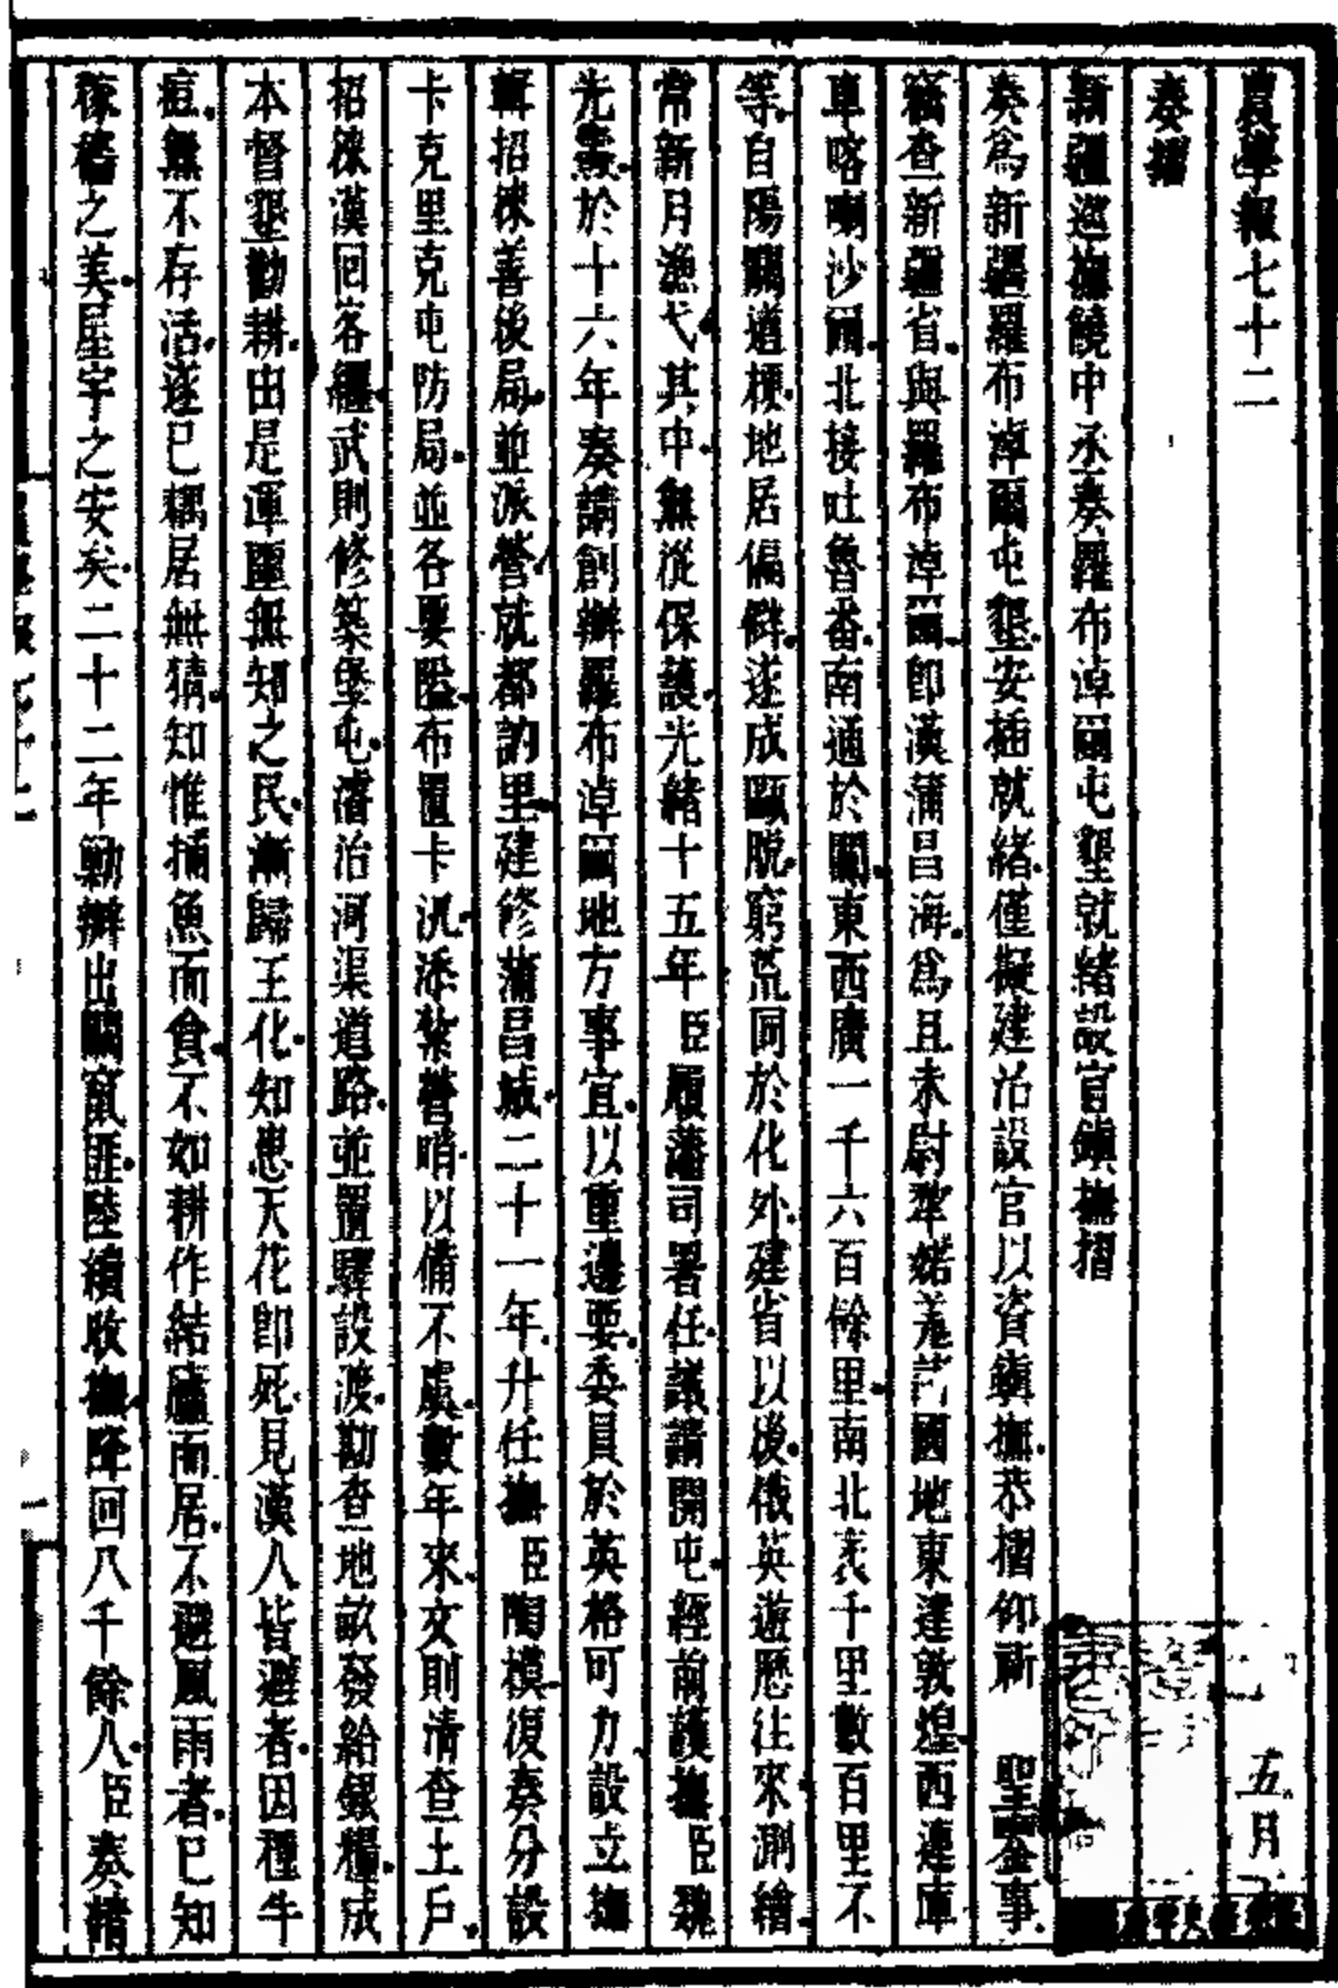 農學報七十二　五月
奏摺
新疆巡撫饒中丞奏羅布淖爾屯墾就緒設官鎭撫摺
奏爲新疆羅布淖爾屯墾安插就緒僅擬建治設官以資鎭撫恭摺仰祈　聖鑒事
竊查新疆省與羅布淖爾卽漢蒲昌海爲且末尉犂婼羌諸國地東達敦煌西連庫
車喀喇沙爾北接吐魯番南通於闐東西廣一千六百餘里南北袤千里數百里不
等自陽關道梗地居偏僻遂成甌脫窮荒同於化外建省以後俄英遊歷往來測繪
常新月漁弋其中無從保護光緖十五年臣履藩司署任議請開屯經前護撫臣魏
光燾於十六年奏請創辦羅布淖爾地方事宜以重邊要委員於英格可力設立撫
輯招徠善後局並派營就都訥里建修蒲昌城二十一年升任撫臣陶模復奏分設
卡克里克屯防局並各要隘布置卡汛添紮營哨以備不虞數年來文則清查土戶
招徠漢回客纏武則修築堡屯濬治河渠道路並置驛設渡勘查地畝發給銀糧成
本督墾勸耕由是渾噩無知之民漸歸王化知患天花卽死見漢人皆避者因種牛
痘無不存活遂已耦居無猜知惟捕魚而食不如耕作結廬而居不避風雨者已知
稼穡之美屋宇之安矣二十二年勦辦出關竄匪陸續收撫降回八千餘人臣奏請